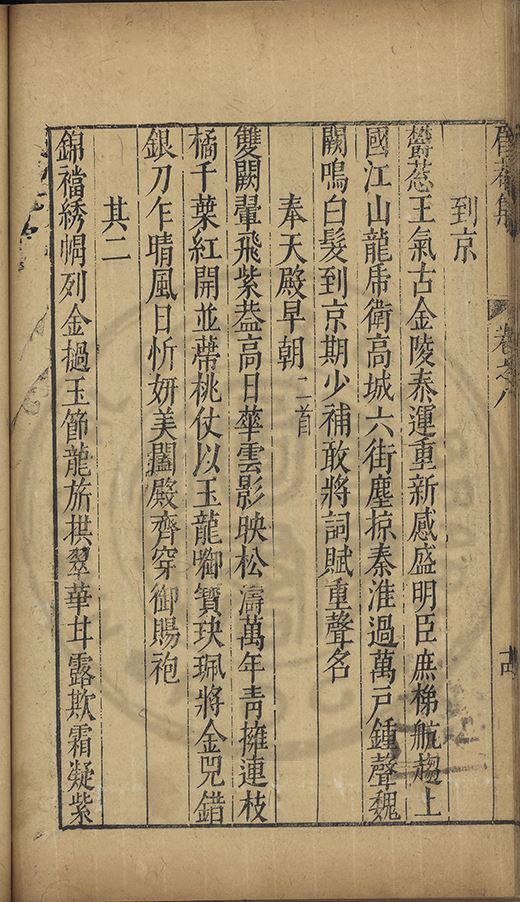 眉菴集 卷之八 十四
到京
欝葱王氣古金陵泰運重新感盛明臣庶梯航趨上
國江山龍虎衛高城六街塵掠秦淮過萬戸鍾聲魏
闕鳴白髮到京期少補敢將詞賦重聲名
奉天殿早朝二首
雙闕翬飛紫葢高日華雲影映松濤萬年靑擁連枝
橘千葉紅開並蔕桃仗以玉龍啣寳玦珮將金兕錯
銀刀乍晴風日忻妍美闔殿齊穿御賜袍
其二
錦襠綉帽列金撾玉節龍旂拱翠華甘露欺霜凝紫